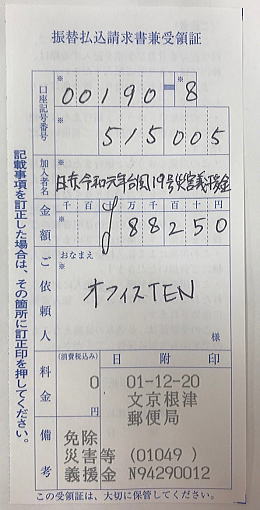 振替払込請求書兼受領証
口座記号番号
※
00190-8
※
515005
加入者名
※
日赤令和元年台風19号災害義援金
金額
千百十万千百十円
¥88250
ご依頼人
おなまえ
※
オフィスTEN
様
料金
(消費税込み)
0
円
日附印
01-12-20
文京根津
郵便局
備考
免除
災害等 (01049)
義援金 N94290012
記載事項を訂正した場合は、その箇所に訂正印を押してください。
この受領証は、大切に保管してください。